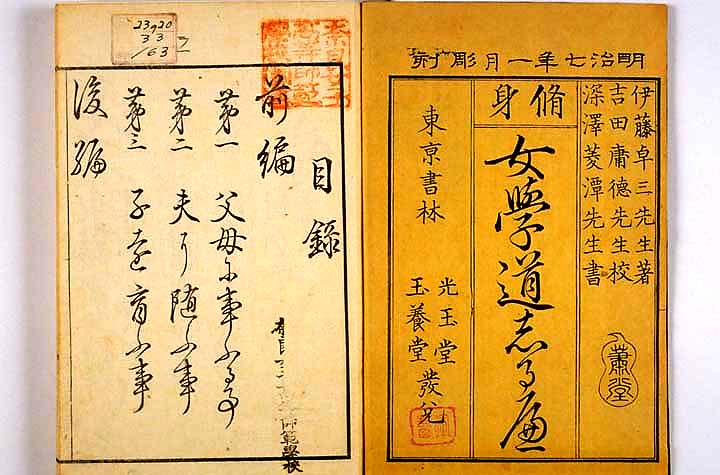 明治七年一月彫刻
伊藤卓三先生著
吉田庸德先生校
深澤菱潭先生書
脩身
女學道志る遍
東京書林
光玉堂
玉養堂發兌
目錄
前編
第一 父母尓事ふる事
第二 夫耳随ふ事
第三 子を育ふ事
後編
師範學校
33